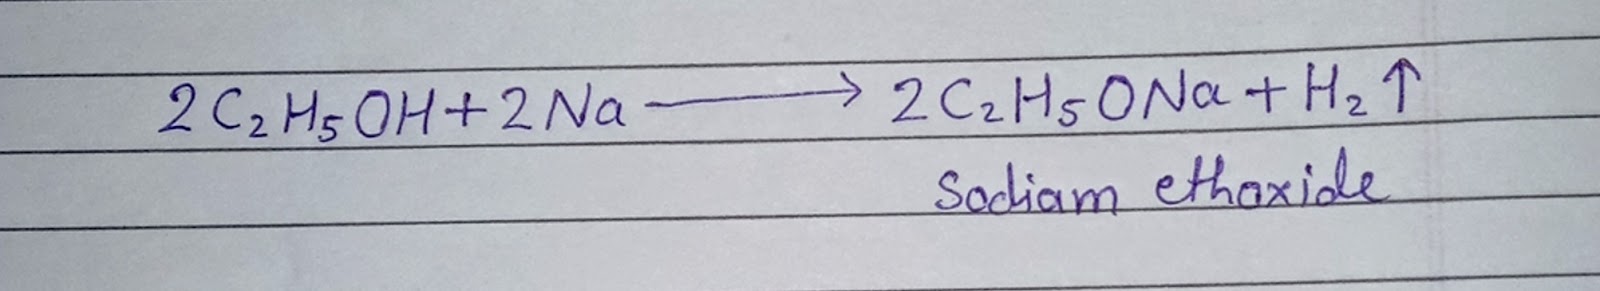 2C₂H₅OH + 2Na ⟶ 2C₂H₅ONa + H₂↑
Sodiam ethoxide